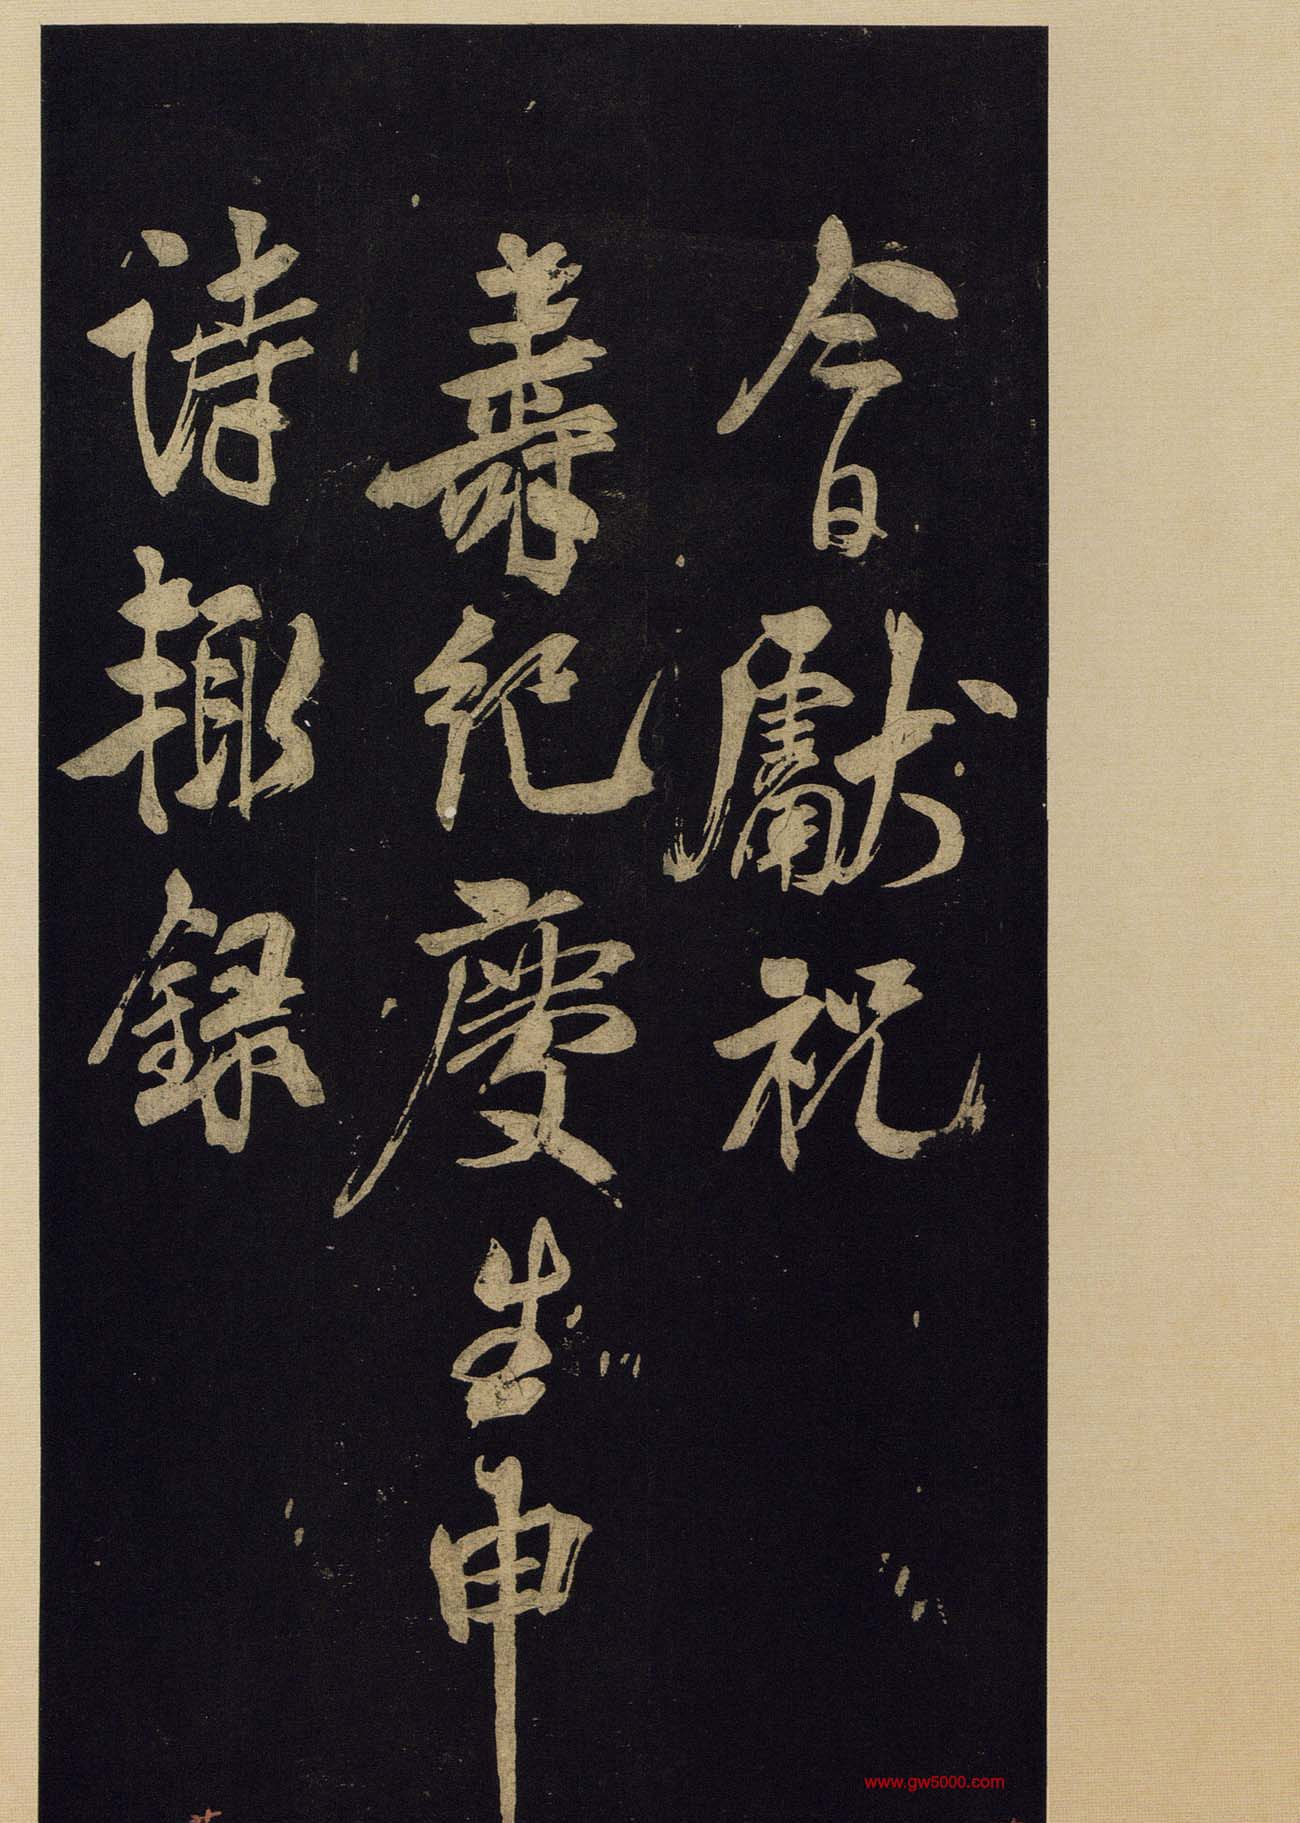 今日獻祝
壽紀慶生申
詩輙錄
www.gw5000.com